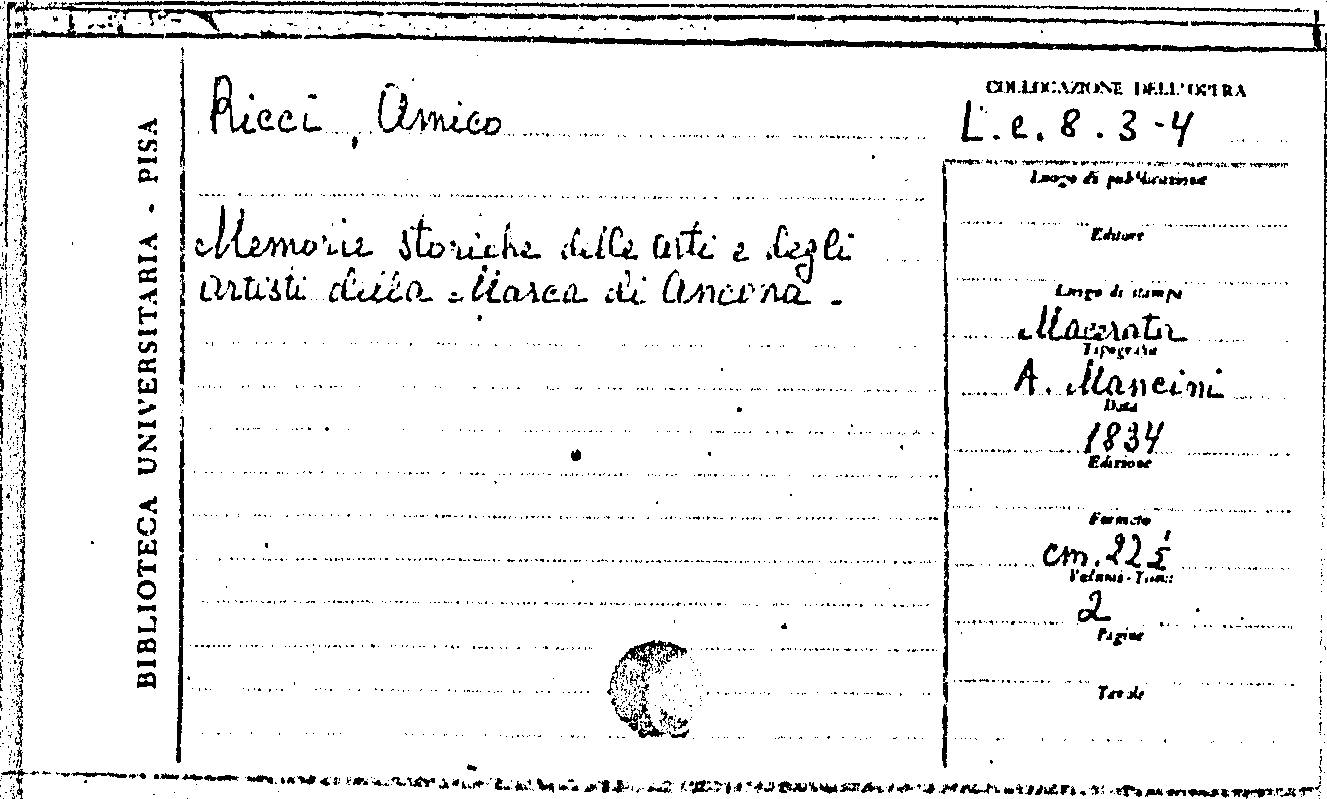 BIBLIOTECA UNIVERSITARIA - PISA
Ricci, Amico
Memorie storiche delle arti e degli
artisti della Marca di Ancona.
COLLOCAZIONE DELL'OPERA
L.e.8.3-4
Luogo di pubblicazione
Editore
Luogo di stampa
Macerata
Tipografia
A. Mancini
Data
1834
Edizione
Formato
cm. 22 ½
Volumi - Tomi
2
Pagine
Tavole